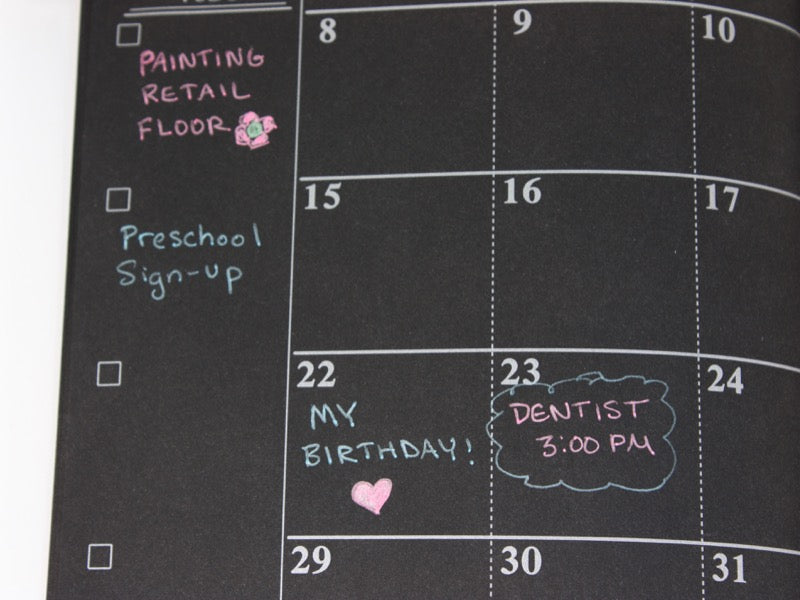 8 9 10
PAINTING
RETAIL
FLOOR
15 16 17
Preschool
Sign-up
22 23 24
MY
BIRTHDAY!
DENTIST
3:00 PM
29 30 31